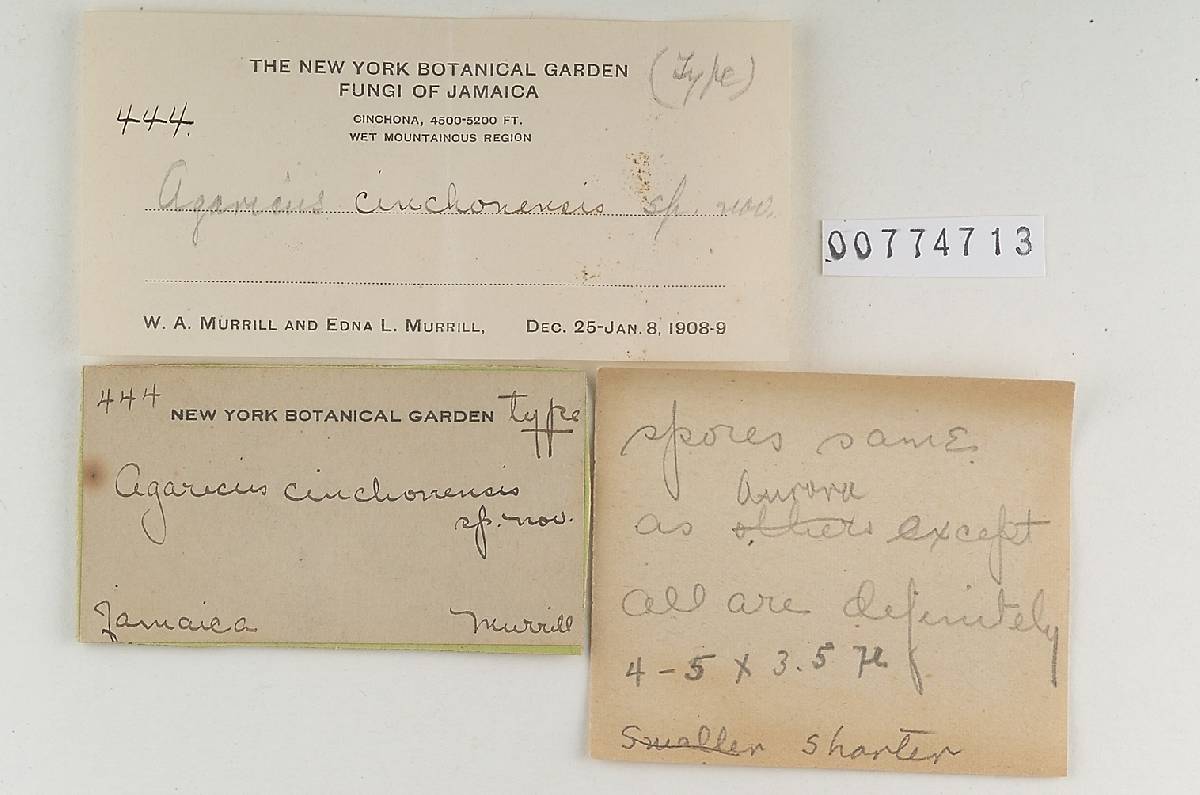 THE NEW YORK BOTANICAL GARDEN
(Type)
FUNGI OF JAMAICA
444.
CINCHONA, 4500-5200 FT.
WET MOUNTAINOUS REGION
Agaricus cinchonensis sp. nov.
W. A. MURRILL AND EDNA L. MURRILL, DEC. 25-JAN. 8, 1908-9
00774713
444
NEW YORK BOTANICAL GARDEN type
Agaricus cinchonensis
sp. nov.
Jamaica Murrill
spores same
Aurora
as others except
all are definitely
4-5 x 3.5 µ
Smaller shorter